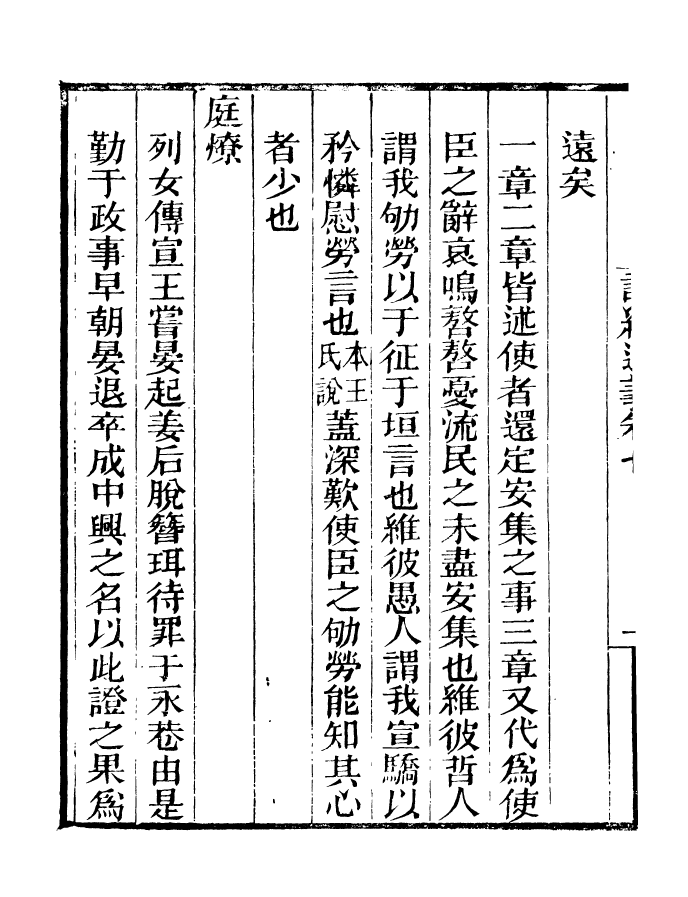 遠矣
一章二章皆述使者還定安集之事三章又代爲使
臣之辭哀鳴嗸嗸憂流民之未盡安集也維彼哲人
謂我劬勞以于征于垣言也維彼愚人謂我宣驕以
矜憐慰勞言也本王氏說蓋深歎使臣之劬勞能知其心
者少也
庭燎
列女傳宣王嘗晏起姜后脫簪珥待罪于永巷由是
勤于政事早朝晏退卒成中興之名以此證之果爲